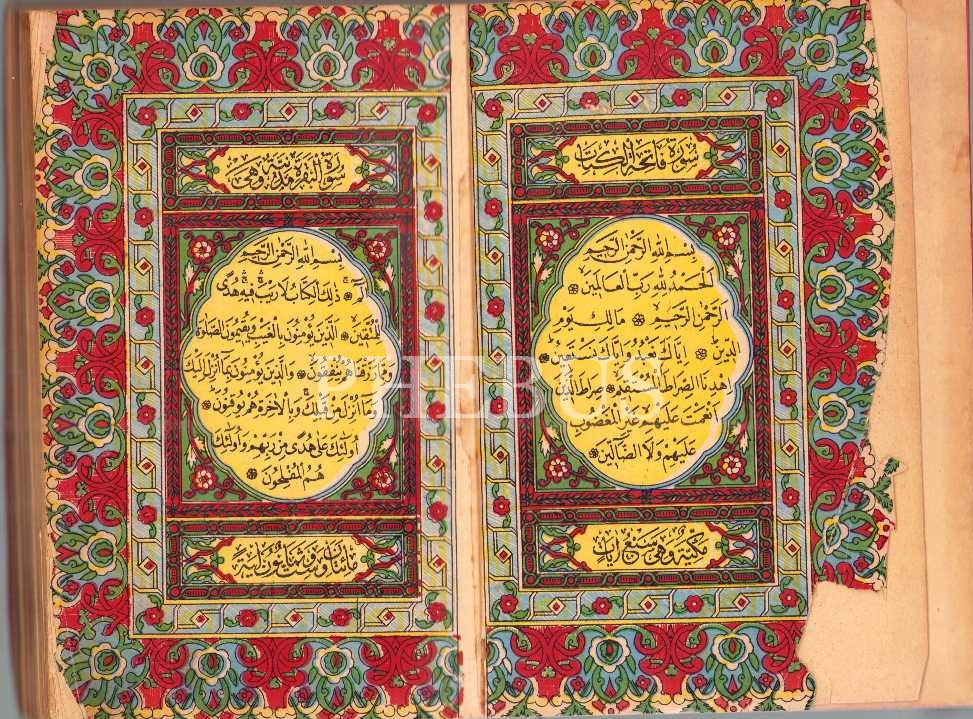 سورة فاتحة الكتاب
بسم الله الرحمن الرحيم
الحمد لله رب العالمين
الرحمن الرحيم ۞ مالك يوم
الدين ۞ إياك نعبد وإياك نستعين ۞
اهدنا الصراط المستقيم ۞ صراط الذين
أنعمت عليهم غير المغضوب
عليهم ولا الضالين ۞
مكية وهي سبع آيات
سورة البقرة مدنية وهي
بسم الله الرحمن الرحيم
الم ۞ ذلك الكتاب لا ريب فيه هدى
للمتقين ۞ الذين يؤمنون بالغيب ويقيمون الصلوة
ومما رزقناهم ينفقون ۞ والذين يؤمنون بما أنزل إليك
وما أنزل من قبلك وبالآخرة هم يوقنون ۞
أولئك على هدى من ربهم وأولئك
هم المفلحون ۞
مائتان وست وثمانون آية
PHEBUS